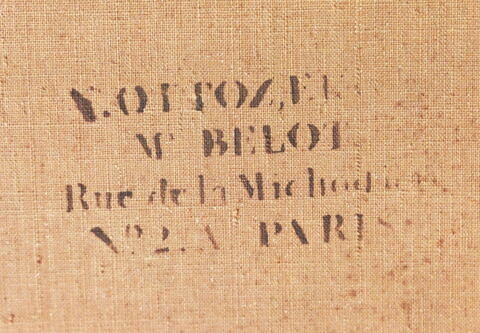 V. OTTOZ, EL
Mr BELOT
Rue de la Michodière
No 2. A PARIS